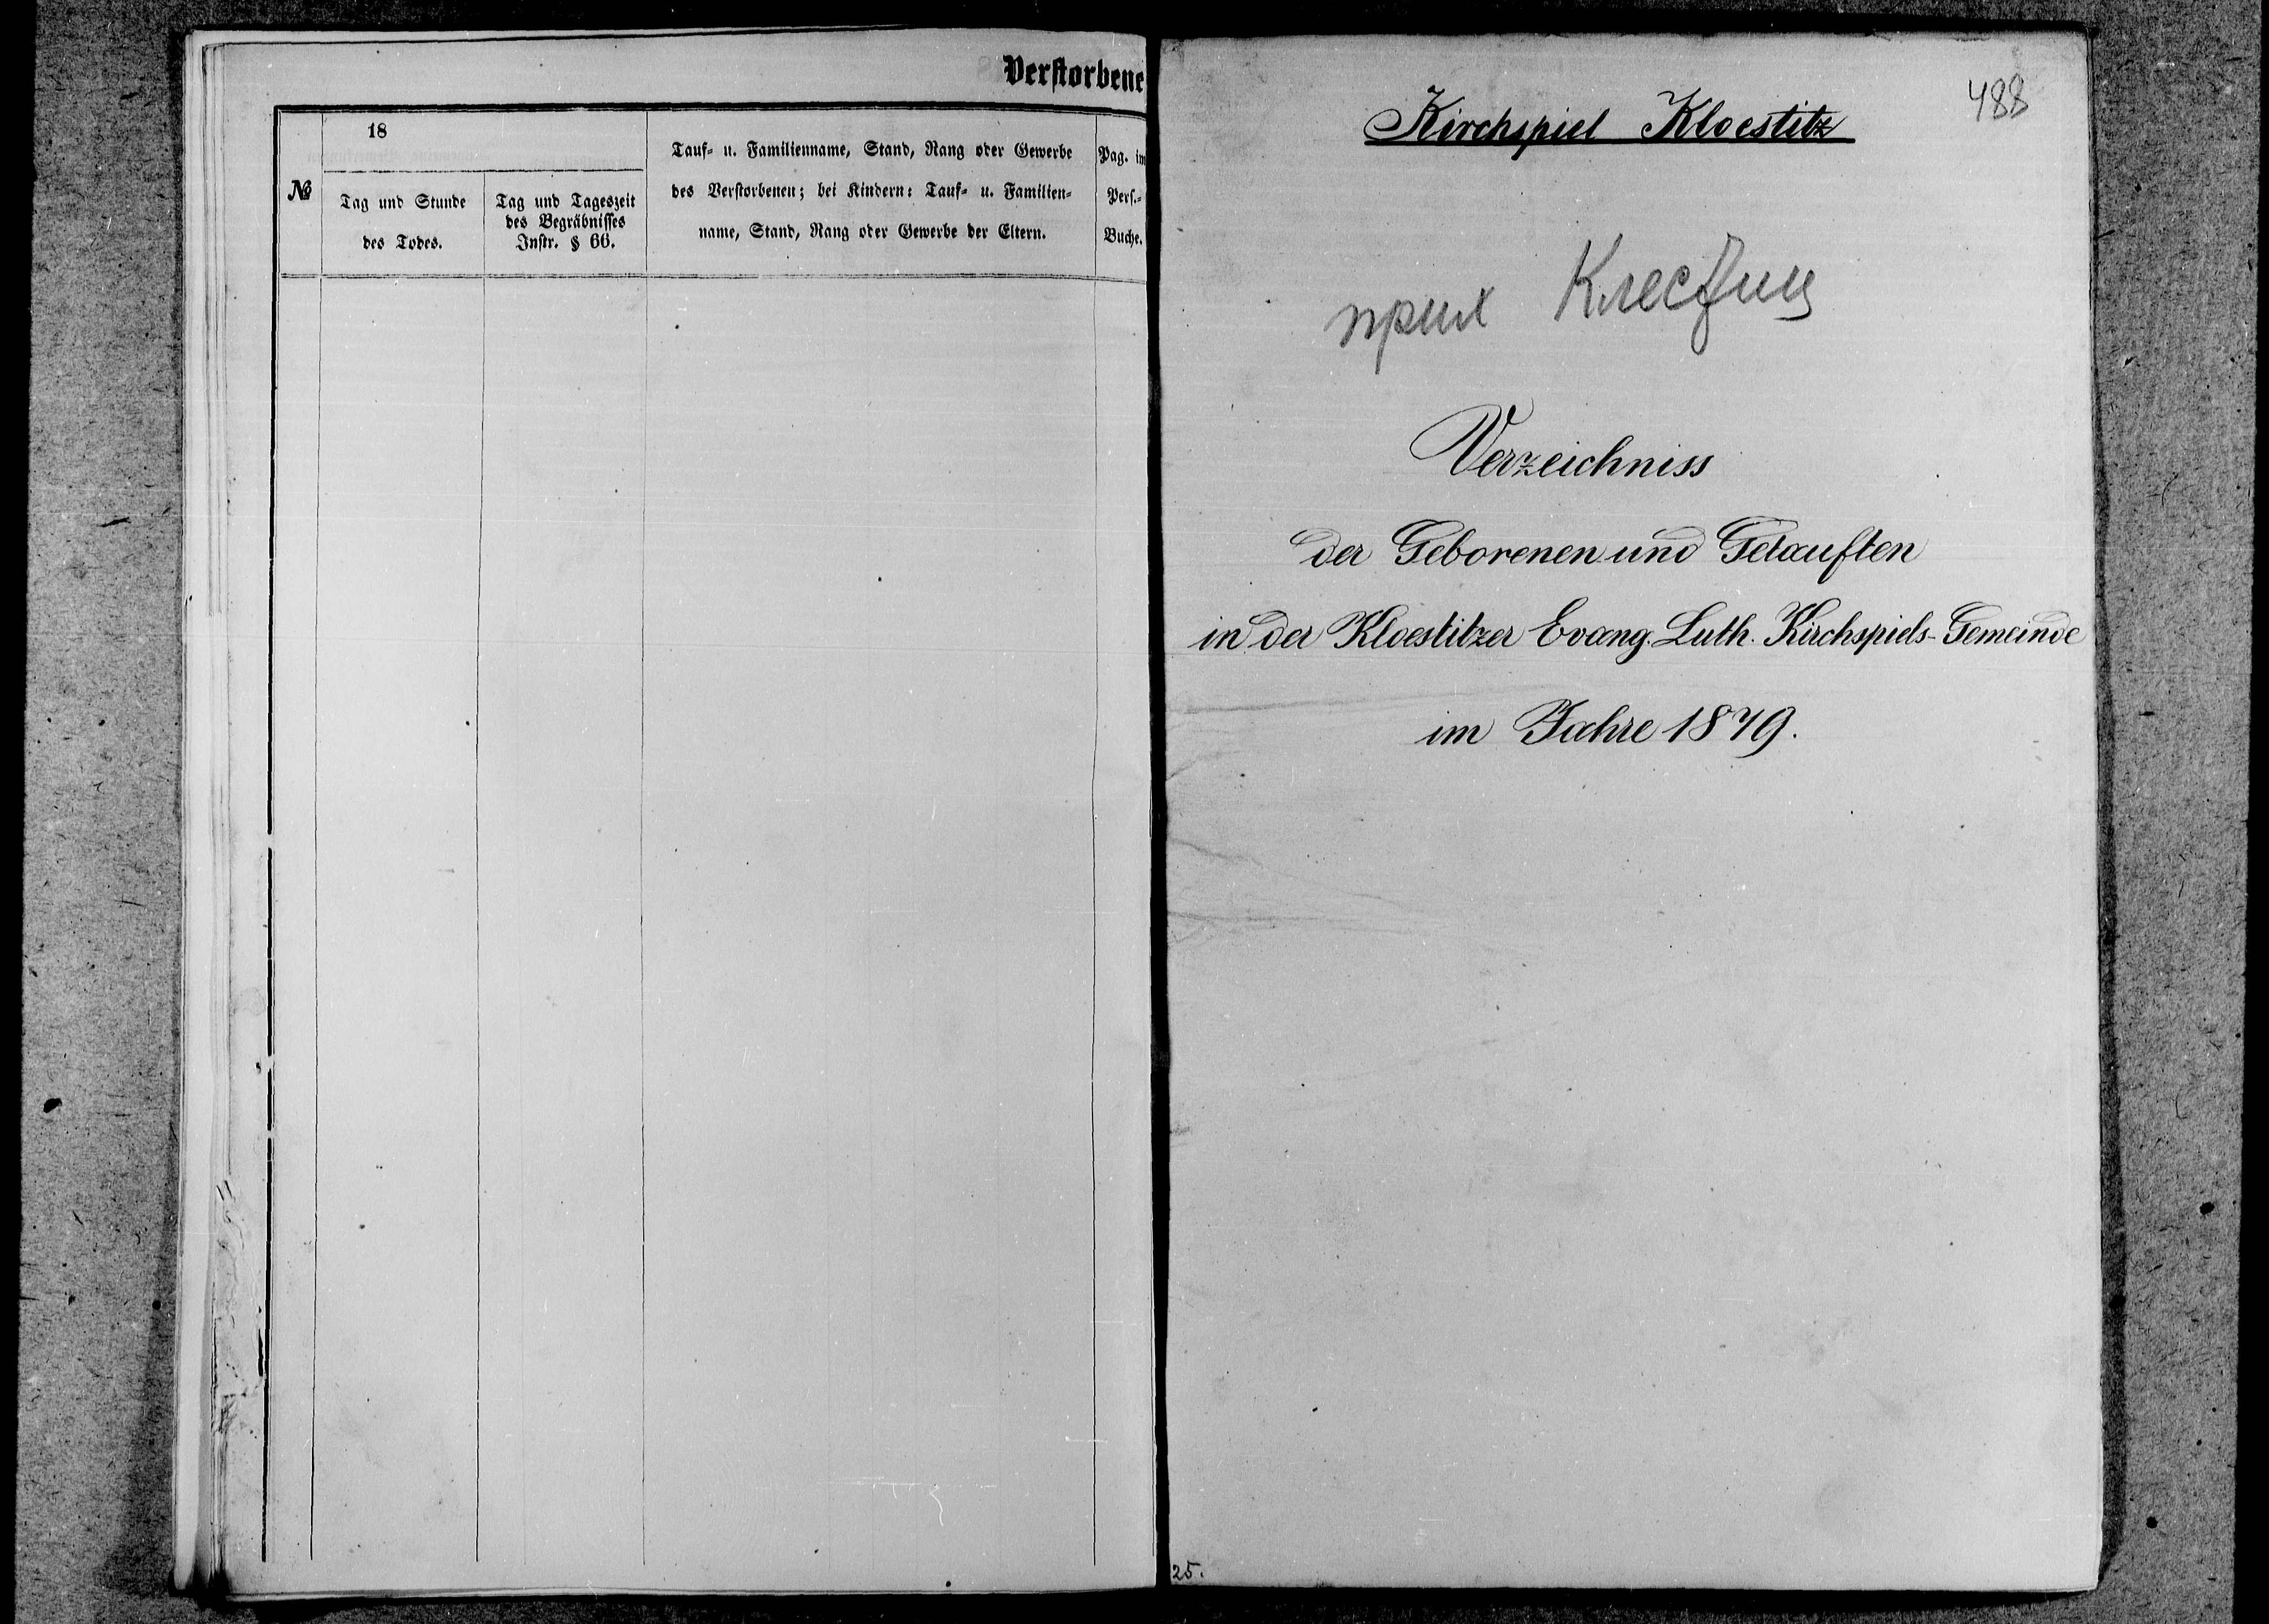 Verstorbene
№
18
Tag und Stunde
des Todes.
Tag und Tageszeit
des Begräbnisses
Instr. § 66.
Tauf- u. Familienname, Stand, Rang oder Gewerbe
des Verstorbenen; bei Kindern: Tauf- u. Familien-
name, Stand, Rang oder Gewerbe der Eltern.
Pag. im
Pers.-
Buche.
488
Kirchspiel Kloestitz
прих Клестиц
Verzeichniss
der Geborenen und Getauften
in der Kloestitzer Evang. Luth. Kirchspiels-Gemeinde
im Jahre 1879.
25.